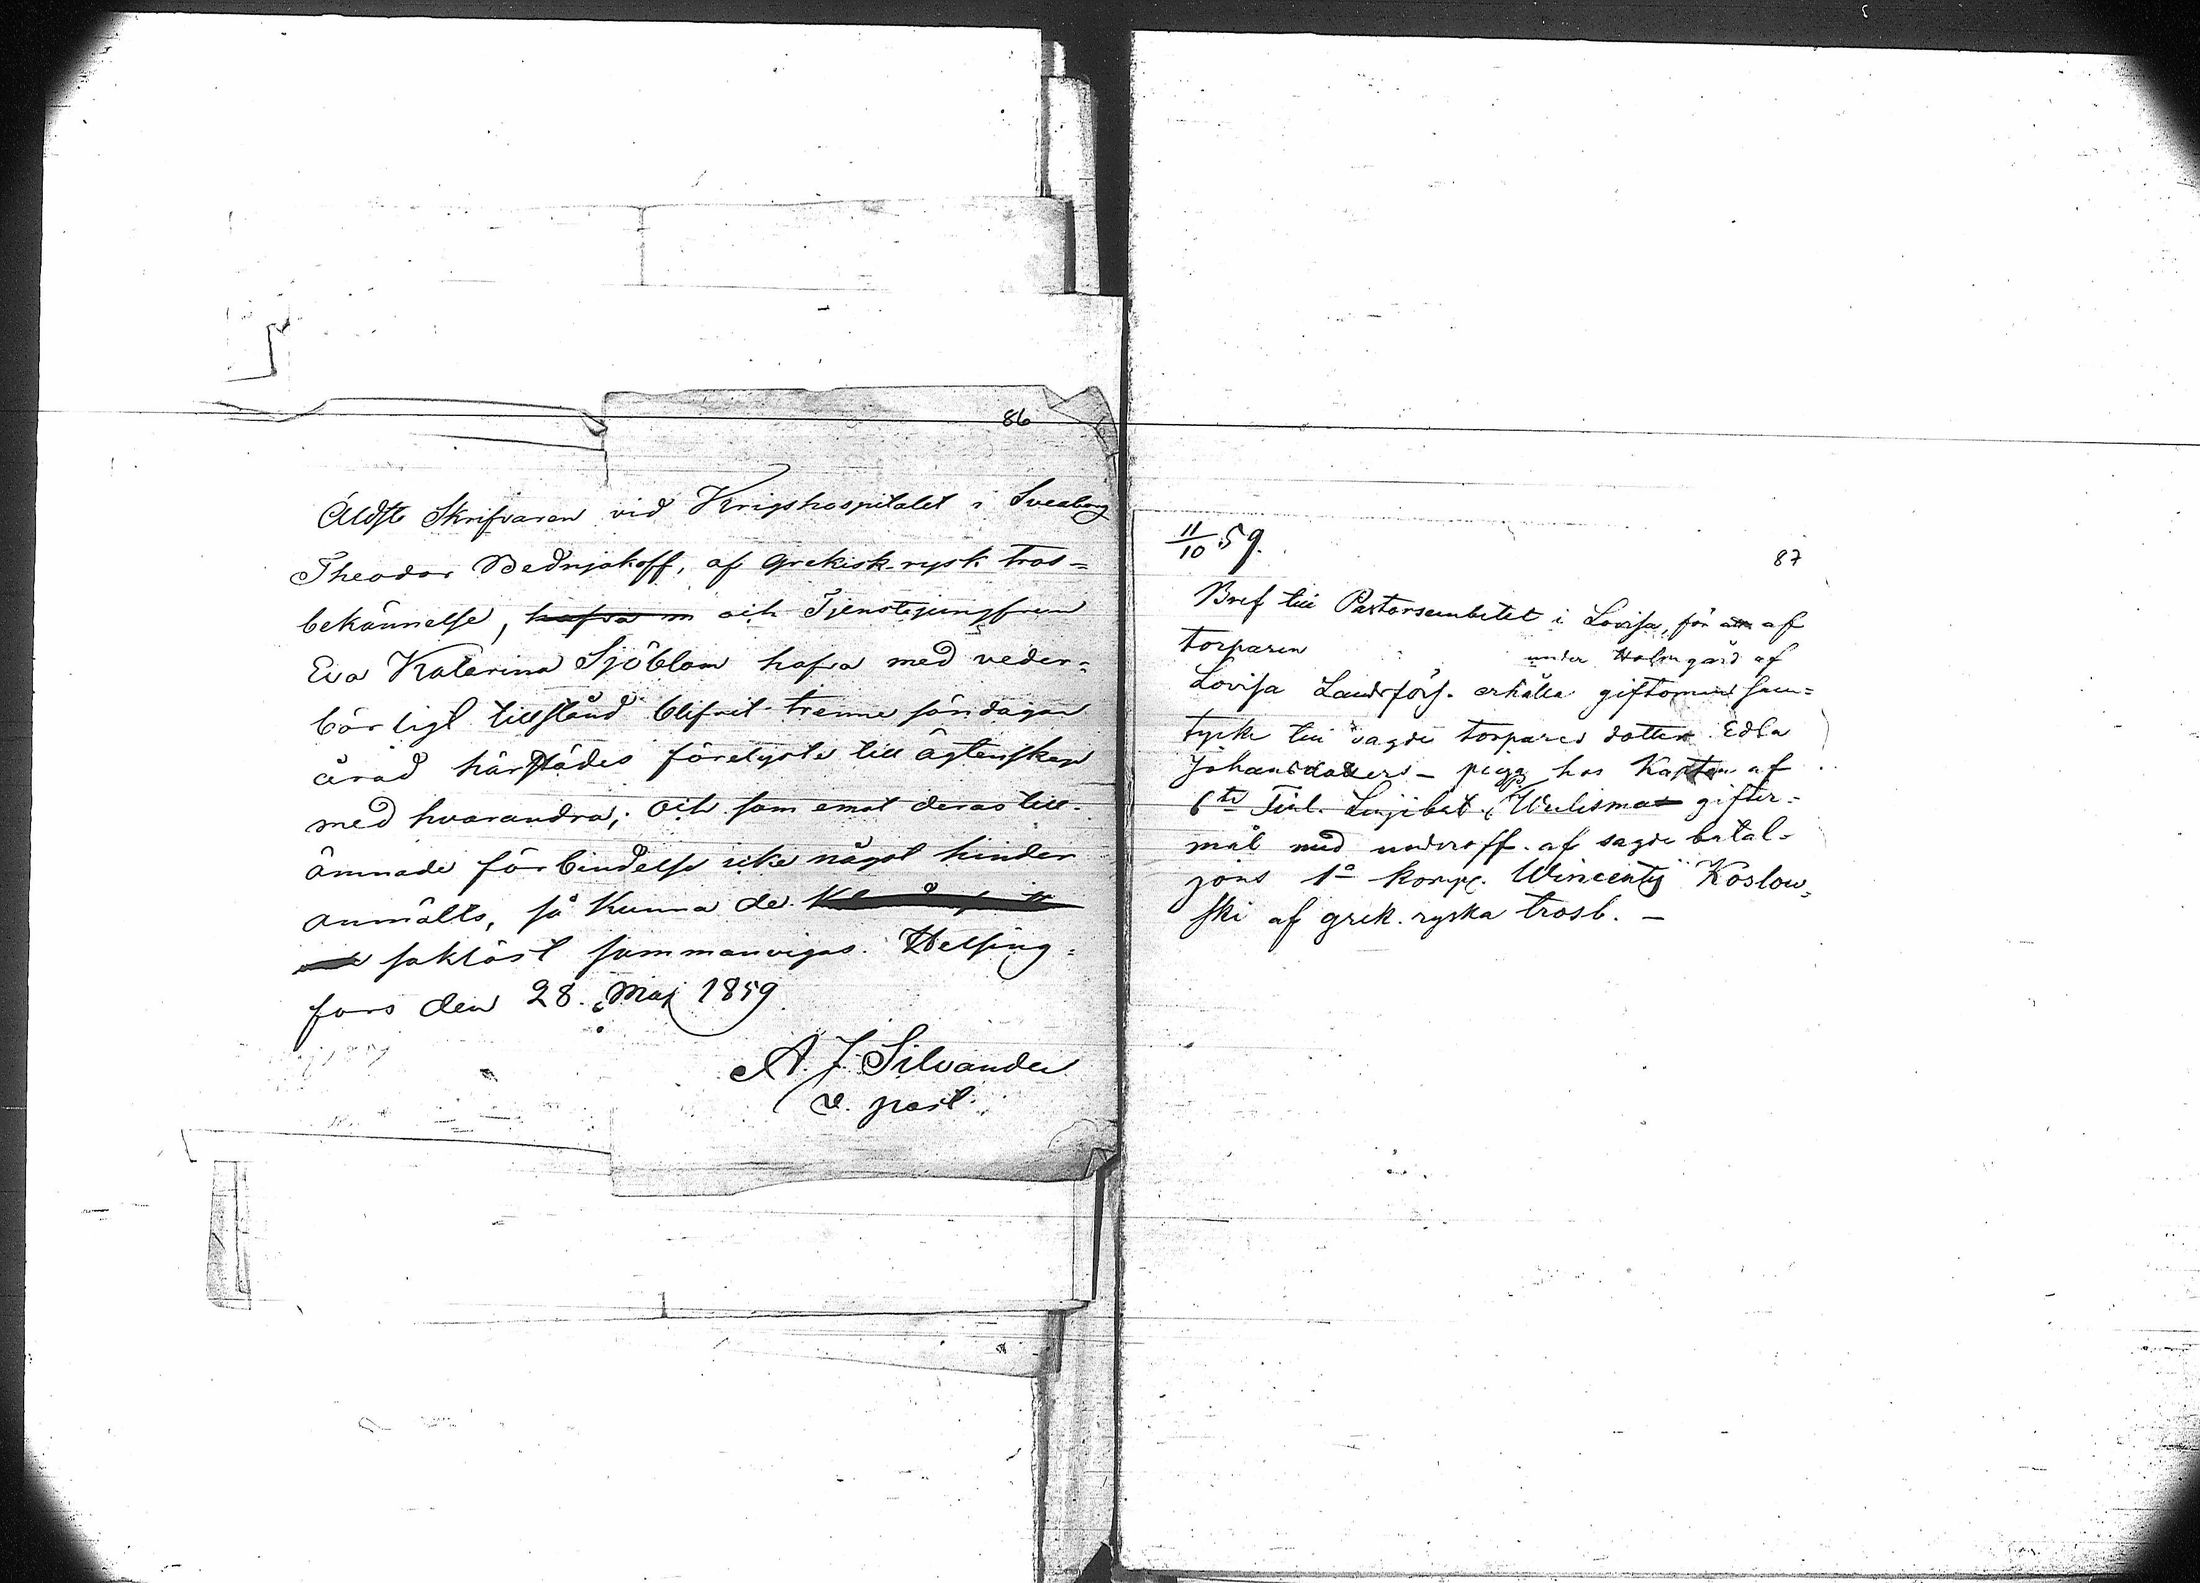 86
Äldste Skrifvaren vid Krigshospitalet i Sveaborg
Theodor Bednjakoff, af grekisk-rysk tros=
bekännelse, hafva och Tjenstejungfrun
Eva Katarina Sjöblom hafva med veder=
börligt tillstånd blifvit trenne söndagar
å rad härstädes förelyste till ägtenskap
med hvarandra; och som emot deras till=
ämnade förbindelse icke något hinder
anmälts, så kunna de
saklöst sammanvigas. Helsing=
fors den 28. Maj 1859
A. J. Silvander
v. past.
11/10 59.
87
Bref till Pastorsembetet i Lovisa, för att af
torparen under Holmgård af
Lovisa Landsförs. erhålla giftomans sam=
tycke till sagde torpares dotter Edla
Johansdotters - piga hos Kapten af
6te Finl. Linjebat. Wulismas gifter=
mål med underoff. af sagde batal=
jons 1a komp. Wincenty Koslow=
ski af grek. ryska trosb. -